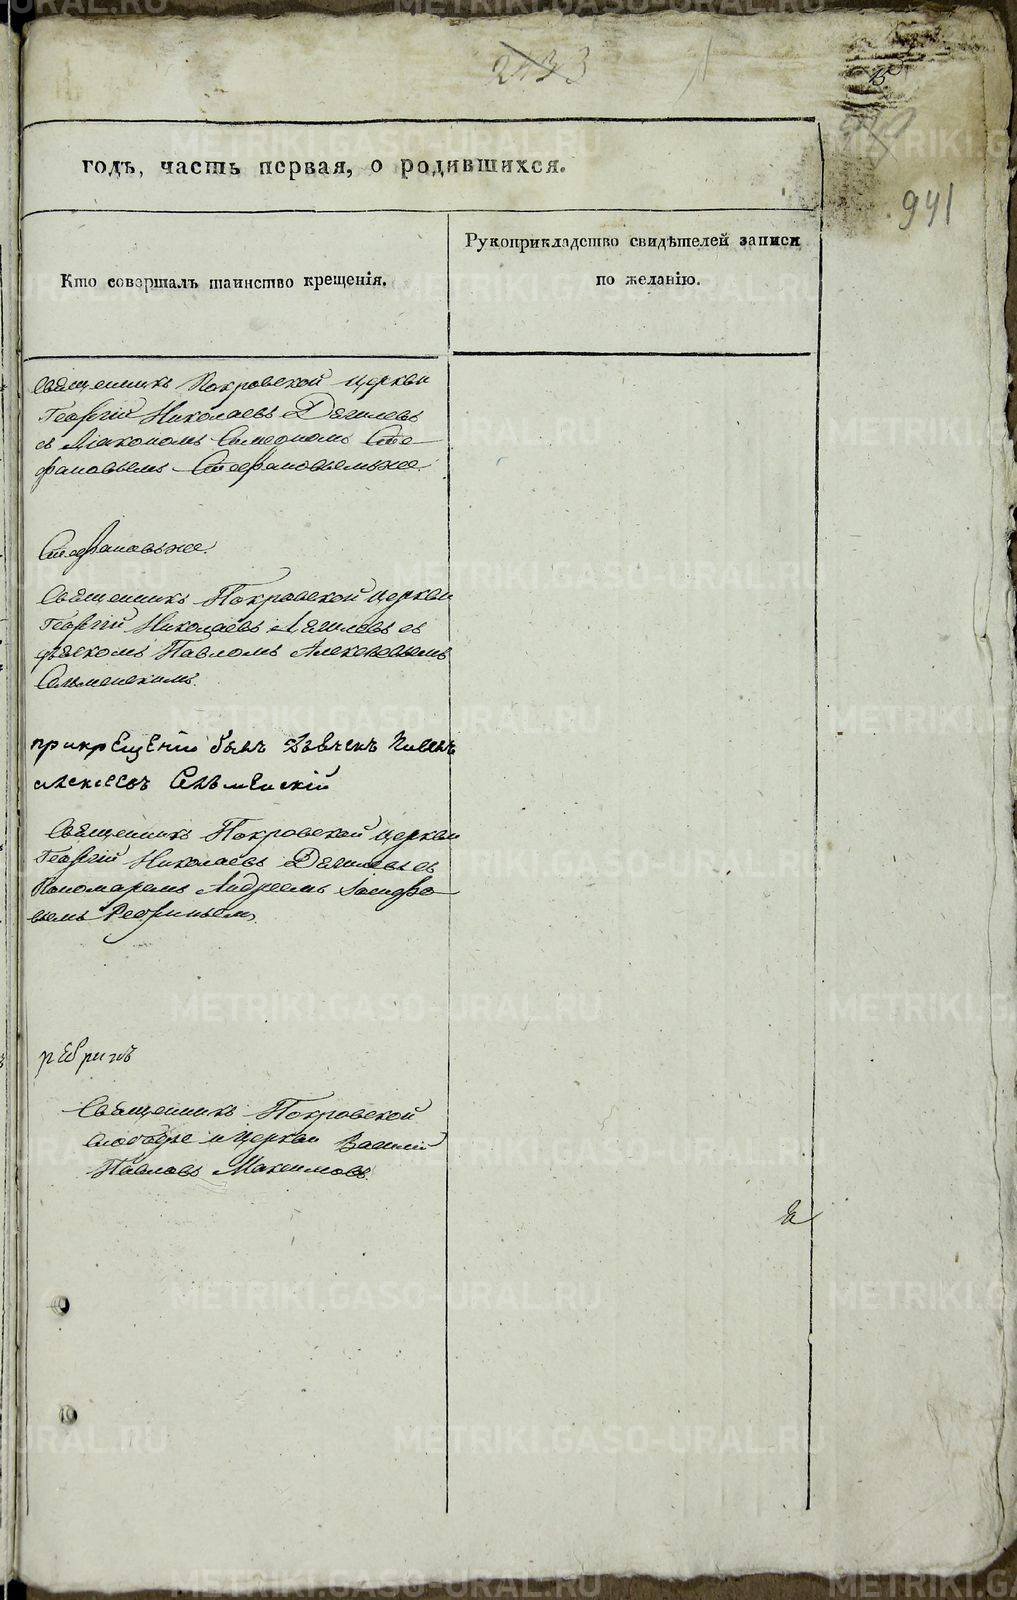 2433
15
941
годъ, часть первая, о родившихся.
Кто совершалъ таинство крещенія.
Рукоприкладство свидѣтелей записи
по желанію.
Священникъ Покровской церкви
Георгій Николаевъ Дягилевъ
съ Діакономъ Симеономъ Сте-
фановымъ Стефановымъ же
Стефановъ же
Священникъ Покровской церкви
Георгій Николаевъ Дягилевъ съ
дьячкомъ Павломъ Алексѣевымъ
Сельменскимъ.
при крещеніи былъ дьячекъ Павелъ
алексеевъ Сельменскій
Священникъ Покровской церкви
Георгій Николаевъ Дягилевъ съ
Пономаремъ Андреемъ Іосифо-
вымъ Ребринымъ
ребринъ
Священникъ Покровской
слободы церкви Василій
Павловъ Максимовъ.
METRIKI.GASO-URAL.RU